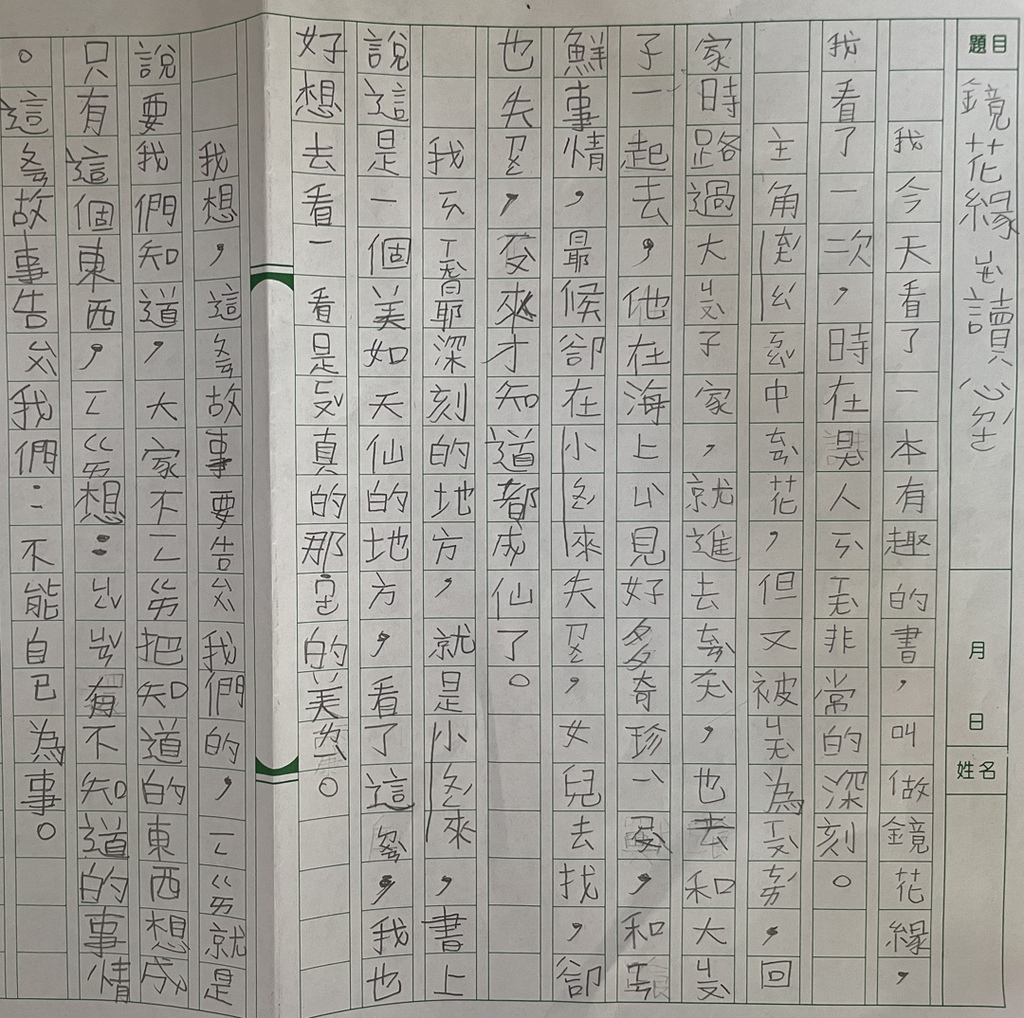 題目 鏡花緣ㄓ讀心ㄉㄜˊ
月 日 姓名
我今天看了一本有趣的書，叫做鏡花緣，
我看了一次，時在人非常的深刻。
主角中ㄊㄢˋ花，但又被為，回
家時路過大ㄐㄧㄡˋ子家，就進去，也和大ㄐㄧㄡˋ
子一起去，他在海上ㄩˋ見好多奇珍ㄧˋ，和
鮮事情，最候卻在小ㄆㄥˊ來失ㄗㄨㄥ，女兒去找，卻
也失ㄗㄨㄥ，來才知道都成仙了。
我深刻的地方，就是小ㄆㄥˊ來，書上
說這是一個美如天仙的地方，看了這，我也
好想去看一看是真的那的美。
我想，這故事要告ㄙㄨˋ我們的，ㄧㄥㄍㄞ就是
說要我們知道，大家不ㄧㄥㄍㄞ把知道的東西想成
只有這個東西，ㄧㄥㄍㄞ想：有不知道的事情
。這故事告ㄙㄨˋ我們：不能自已為事。